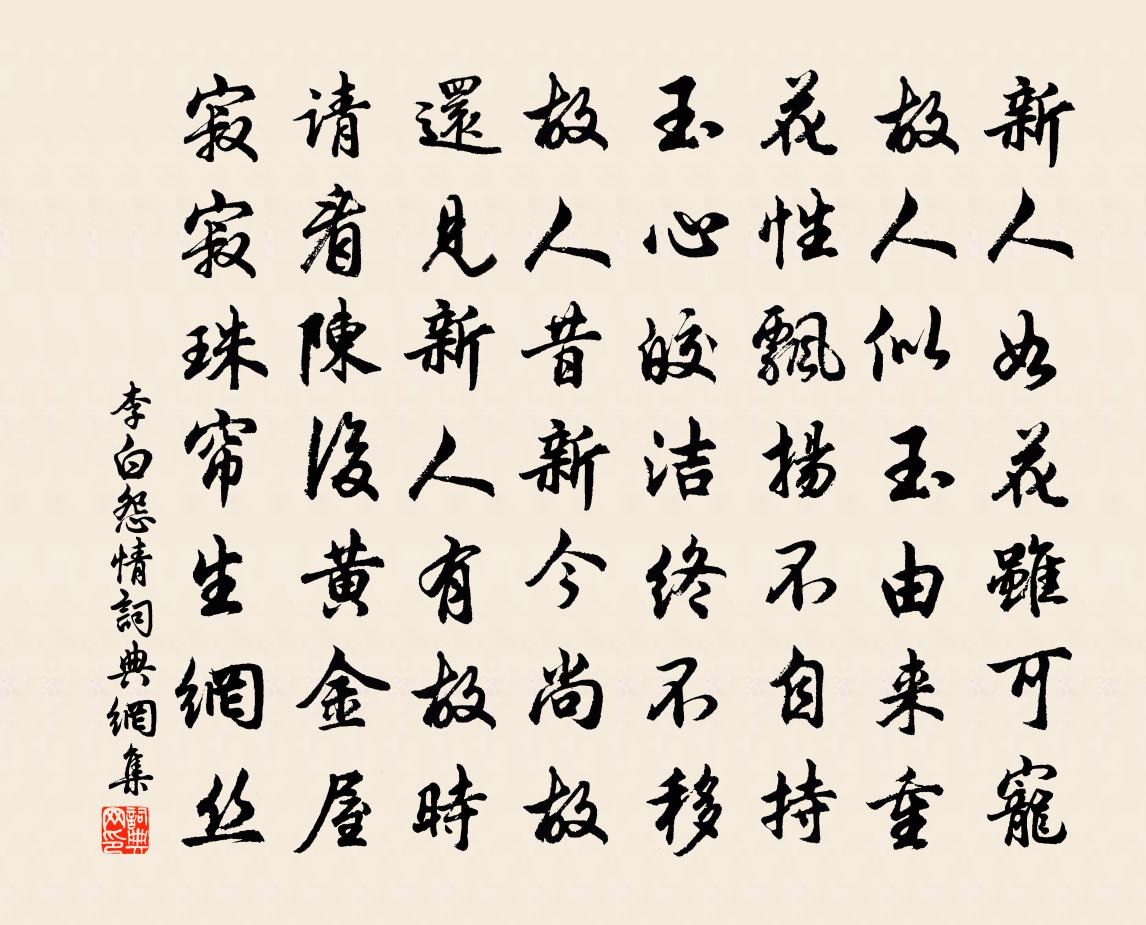 新人如花雖可寵
故人似玉由来重
花性飄揚不自持
玉心皎洁终不移
故人昔新今尚故
還見新人有故時
请看陳後黄金屋
寂寂珠帘生網丝
李白怨情詞典網集
詞典网印